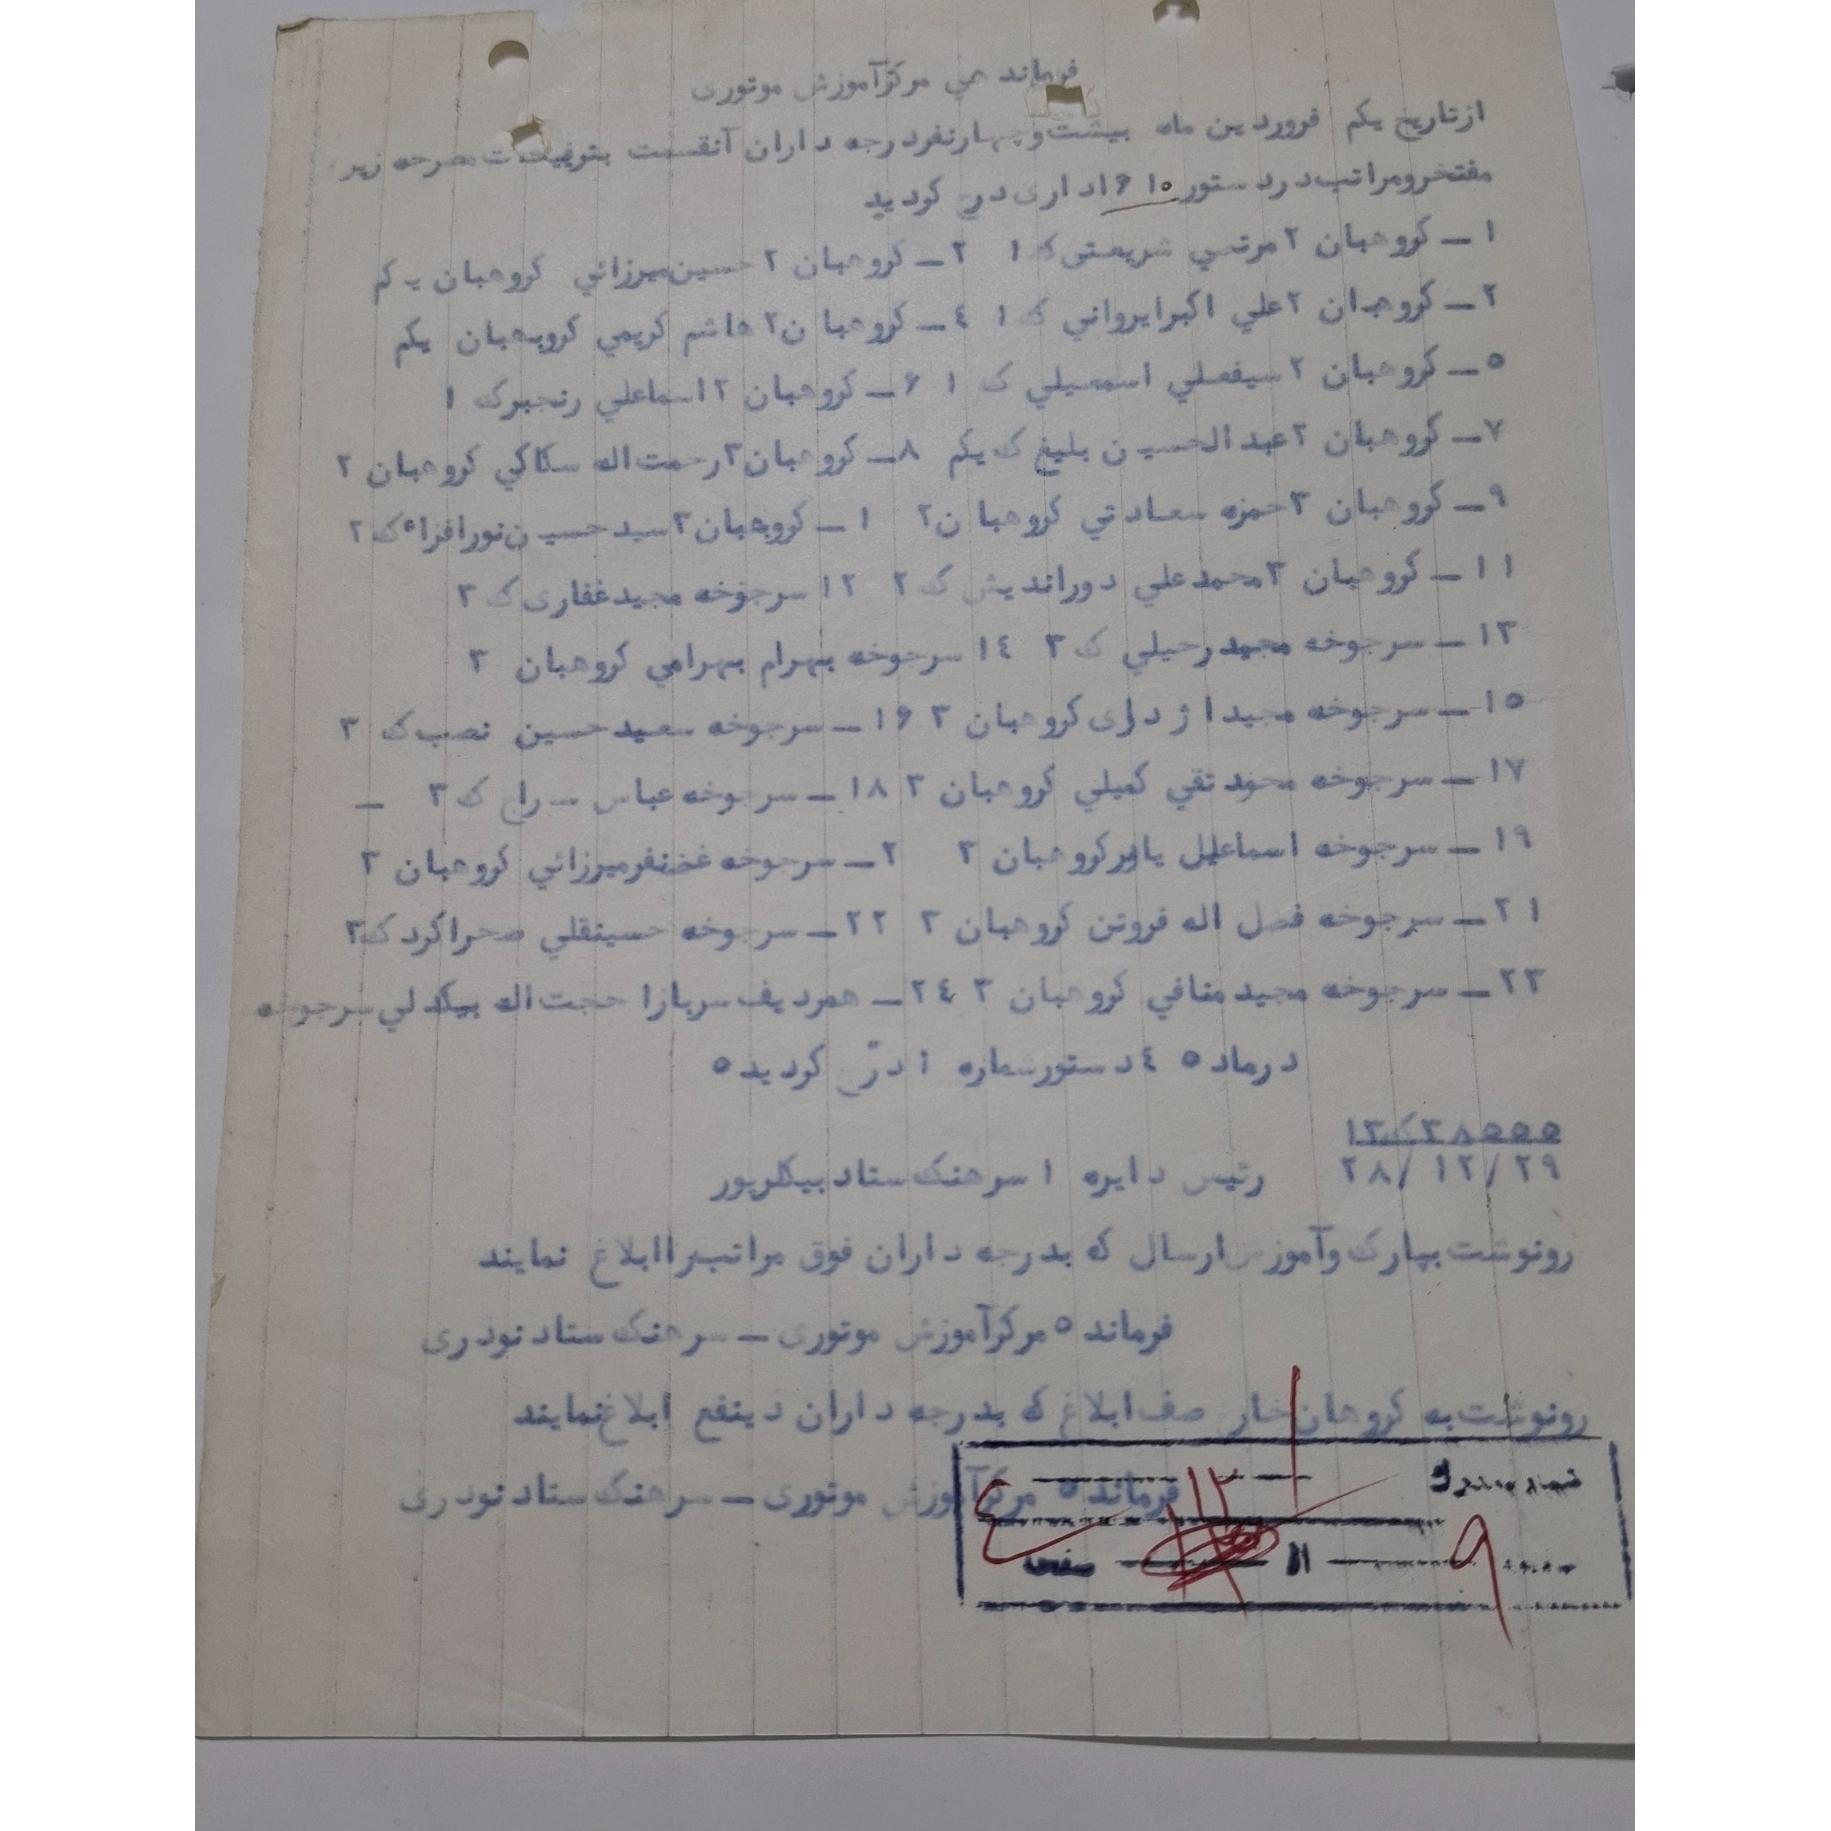 فرماندهي مركزآموزش موتوری
ازتاریخ یکم فروردین ماه بیشت وچهارنفردرجه داران آنقسمت بترفیعات مصرحه زیر
مفتخرومراتب درد ستور ۶۱۰ اداری درج کردید
۱ــ کروهبان ۲ مرتضي شریعتی ک ۱ ۲ــ کروهبان ۲ حسین میرزائي کروهبان یکم
۳ــ کروهبان ۲ علي اکبرایرواني ک ۱ ٤ــ کروهبان ۲ هاشم کریمي کروهبان یکم
۵ــ کروهبان ۲ سیفعلي اسمعیلي ک ۱ ۶ــ کروهبان ۲ اسماعلي رنجبرک ۱
۷ــ کروهبان ۲ عبدالحسین بلیغ ک یکم ۸ــ کروهبان۳ رحمت اله سکاکي کروهبان ۲
۹ــ کروهبان ۳ حمزه سعادتي کروهبان۲ ۱ــ کروهبان۳ سیدحسین نورافزاء ک ۲
۱۱ــ کروهبان ۳ محمدعلي دوراندیش ک ۲ ۱۲ سرجوخه مجیدغفاری ک ۳
۱۳ــ سرجوخه مجیدرحیلي ک ۳ ۱٤ سرجوخه بهرام بهرامي کروهبان ۳
۱۵ــ سرجوخه مجیدا ژدری کروهبان ۳ ۱۶ــ سرجوخه سعیدحسین نصب ک ۳
۱۷ــ سرجوخه محمدتقي کمیلي کروهبان ۳ ۱۸ــ سرجوخه عباس سراج ک ۳ ــ
۱۹ــ سرجوخه اسماعیل یاورکروهبان ۳ ۲ــ سرجوخه غضنفرمیرزائي کروهبان ۳
۲۱ــ سرجوخه فضل اله فروتن کروهبان ۳ ۲۲ــ سرجوخه حسینقلي صحراکرد ک۳
۲۳ــ سرجوخه مجیدمنافي کروهبان ۳ ۲٤ــ همردیف سرباز۱ حجت اله بیکدلي سرجوخه
درماد۵ ٤ دستورشماره ۱ درج کردید۵
۲۸/۱۲/۲۹ رئیس دایره ۱ سرهنک ستاد بیکلرپور
رونوشت بپارک وآموزش ارسال که بدرجه داران فوق مراتب راابلاغ نمایند
فرماند ۵ مرکزآموزش موتوری ــ سرهنک ستاد نودری
رونوشت به کروهان خار صف ابلاغ که بدرجه داران دینفع ابلاغ نمایند
فرماند ۵ مرکزآموزش موتوری ــ سرهنک ستاد نودری
۹ از صفحه